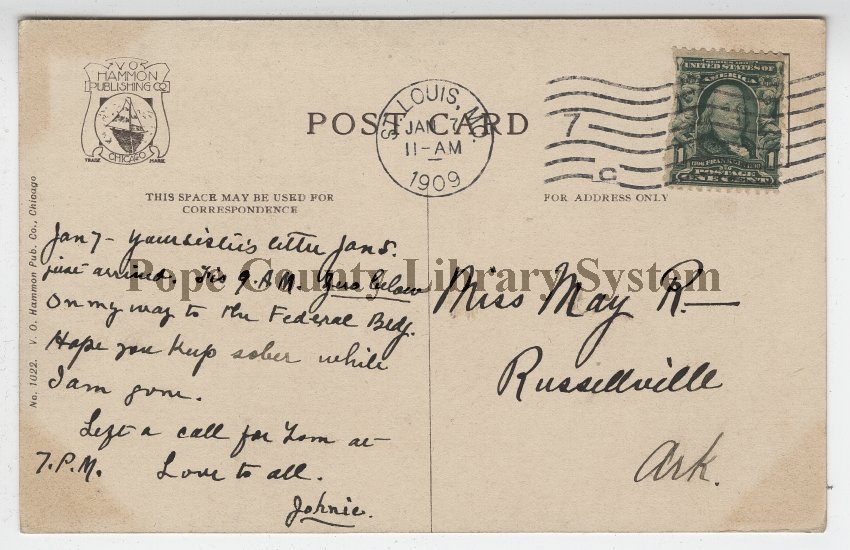 V.O.
HAMMON
PUBLISHING CO
TRADE MARK
CHICAGO
POST CARD
ST. LOUIS, MO.
JAN 7
11-AM
1909
7
C
UNITED STATES OF
AMERICA
1 1
POSTAGE
ONE CENT
THIS SPACE MAY BE USED FOR
CORRESPONDENCE
FOR ADDRESS ONLY
No. 1022. V. O. Hammon Pub. Co., Chicago
Jan 7 - Your sister's letter Jan 5.
just arrived. Tis 9 A.M. Zero below
On my way to the Federal Bldg.
Hope you keep sober while
I am gone.
Left a call for Tom at
7.P.M. Love to all.
Johnie.
Miss May R—
Russellville
Ark.
Pope County Library System